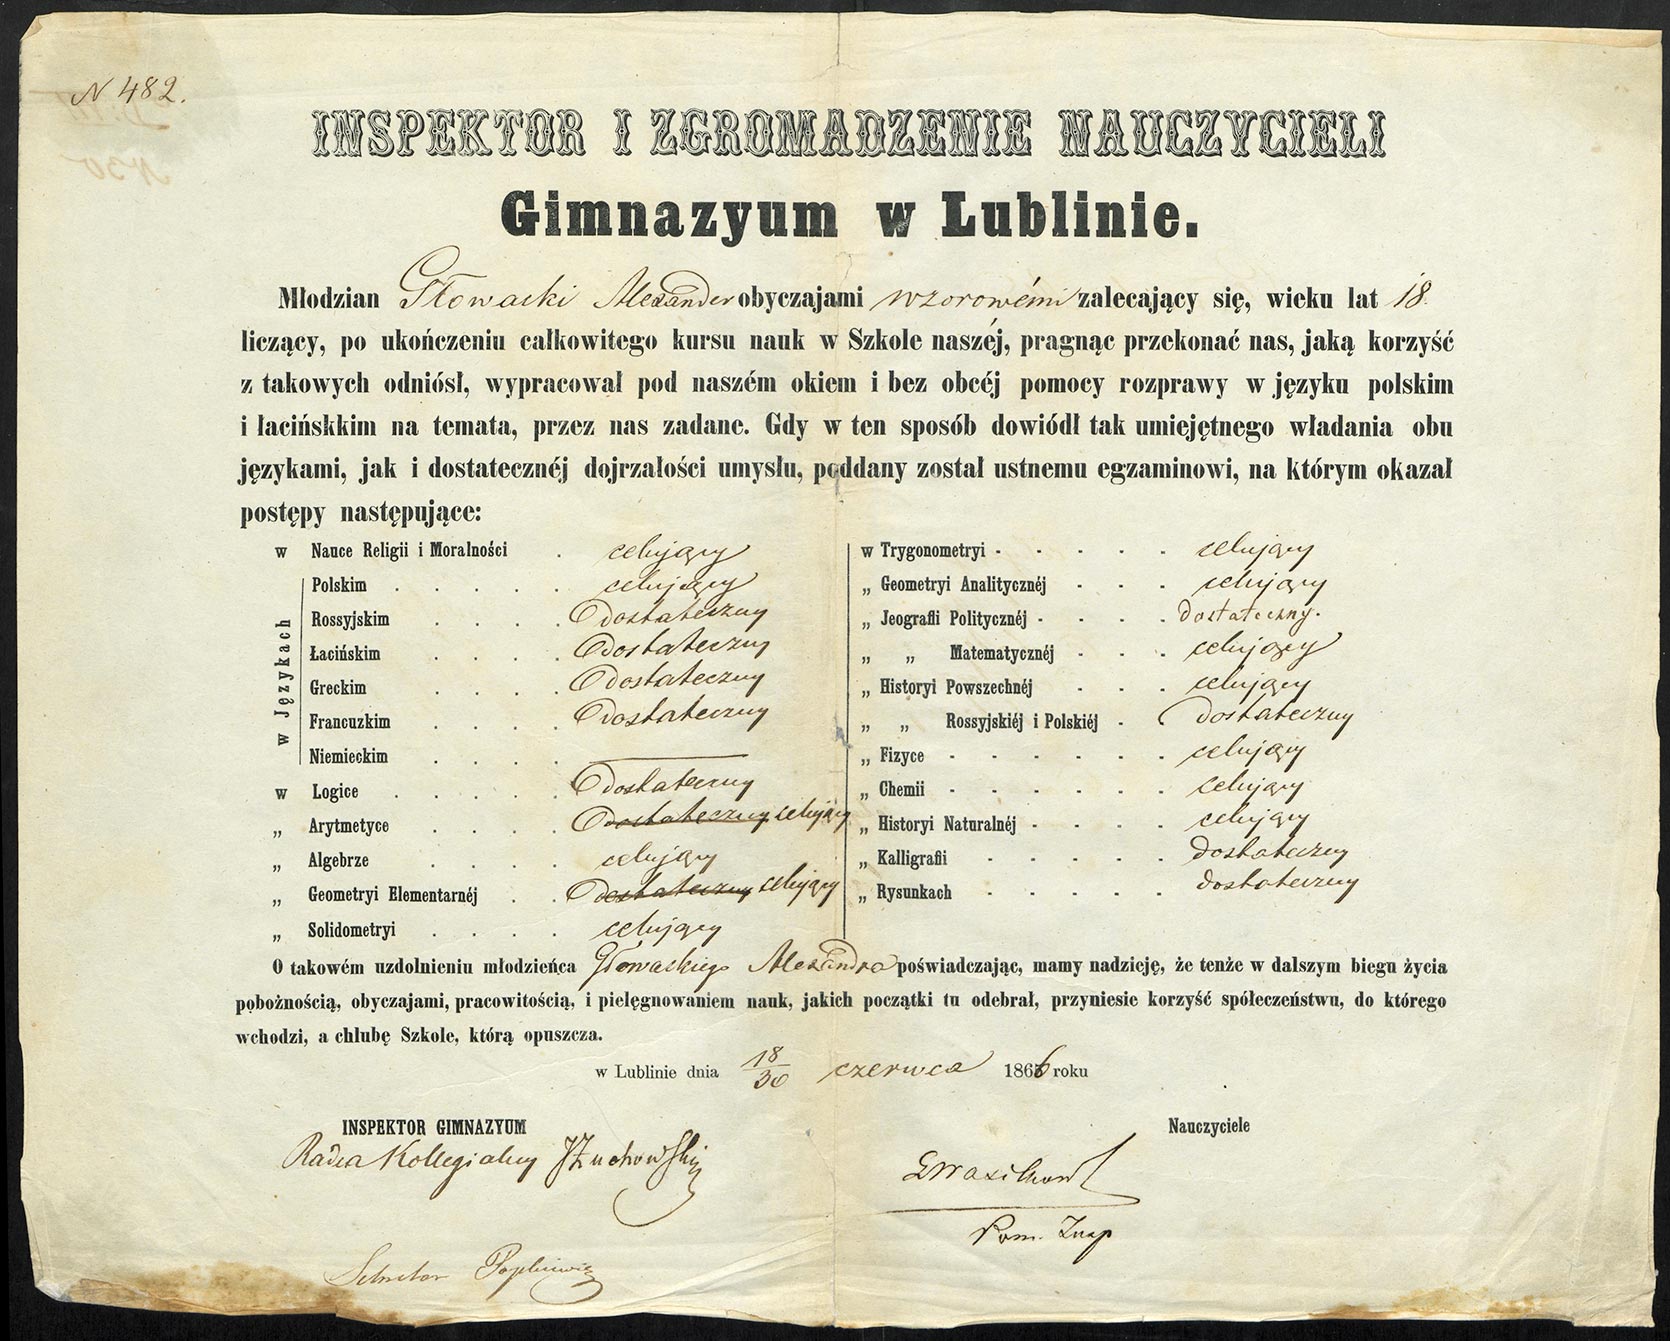 N 482.
INSPEKTOR I ZGROMADZENIE NAUCZYCIELI
Gimnazyum w Lublinie.
Młodzian Głowacki Alexander obyczajami wzorowémi zalecający się, wieku lat 18.
liczący, po ukończeniu całkowitego kursu nauk w Szkole naszéj, pragnąc przekonać nas, jaką korzyść
z takowych odniósł, wypracował pod naszém okiem i bez obcéj pomocy rozprawy w języku polskim
i łacińskkim na temata, przez nas zadane. Gdy w ten sposób dowiódł tak umiejętnego władania obu
językami, jak i dostatecznéj dojrzałości umysłu, poddany został ustnemu egzaminowi, na którym okazał
postępy następujące:
w Nauce Religii i Moralności . celujący
w Językach
Polskim . . . . . celujący
Rossyjskim . . . . Dostateczny
Łacińskim . . . . Dostateczny
Greckim . . . . Dostateczny
Francuzkim . . . . Dostateczny
Niemieckim . . . .
w Logice . . . . . Dostateczny
„ Arytmetyce . . . . Dostateczny celujący
„ Algebrze . . . . celujący
„ Geometryi Elementarnéj . . Dostateczny celujący
„ Solidometryi . . . . celujący
w Trygonometryi - - - - - celujący
„ Geometryi Analitycznéj - - - celujący
„ Jeografii Politycznéj - - - - dostateczny.
„ „ Matematycznéj - - - celujący
„ Historyi Powszechnéj - - - celujący
„ „ Rossyjskiéj i Polskiéj - - dostateczny
„ Fizyce - - - - - - celujący
„ Chemii - - - - - - celujący
„ Historyi Naturalnéj - - - - celujący
„ Kalligrafii - - - - - dostateczny
„ Rysunkach - - - - - dostateczny
O takowém uzdolnieniu młodzieńca Głowackiego Alexandra poświadczając, mamy nadzieję, że tenże w dalszym biegu życia
pobożnością, obyczajami, pracowitością, i pielęgnowaniem nauk, jakich początki tu odebrał, przyniesie korzyść społeczeństwu, do którego
wchodzi, a chlubę Szkole, którą opuszcza.
w Lublinie dnia 18/30 czerwca 1866 roku
INSPEKTOR GIMNAZYUM
Nauczyciele
Radca Kollegialny JŻuchowski
Sekretar